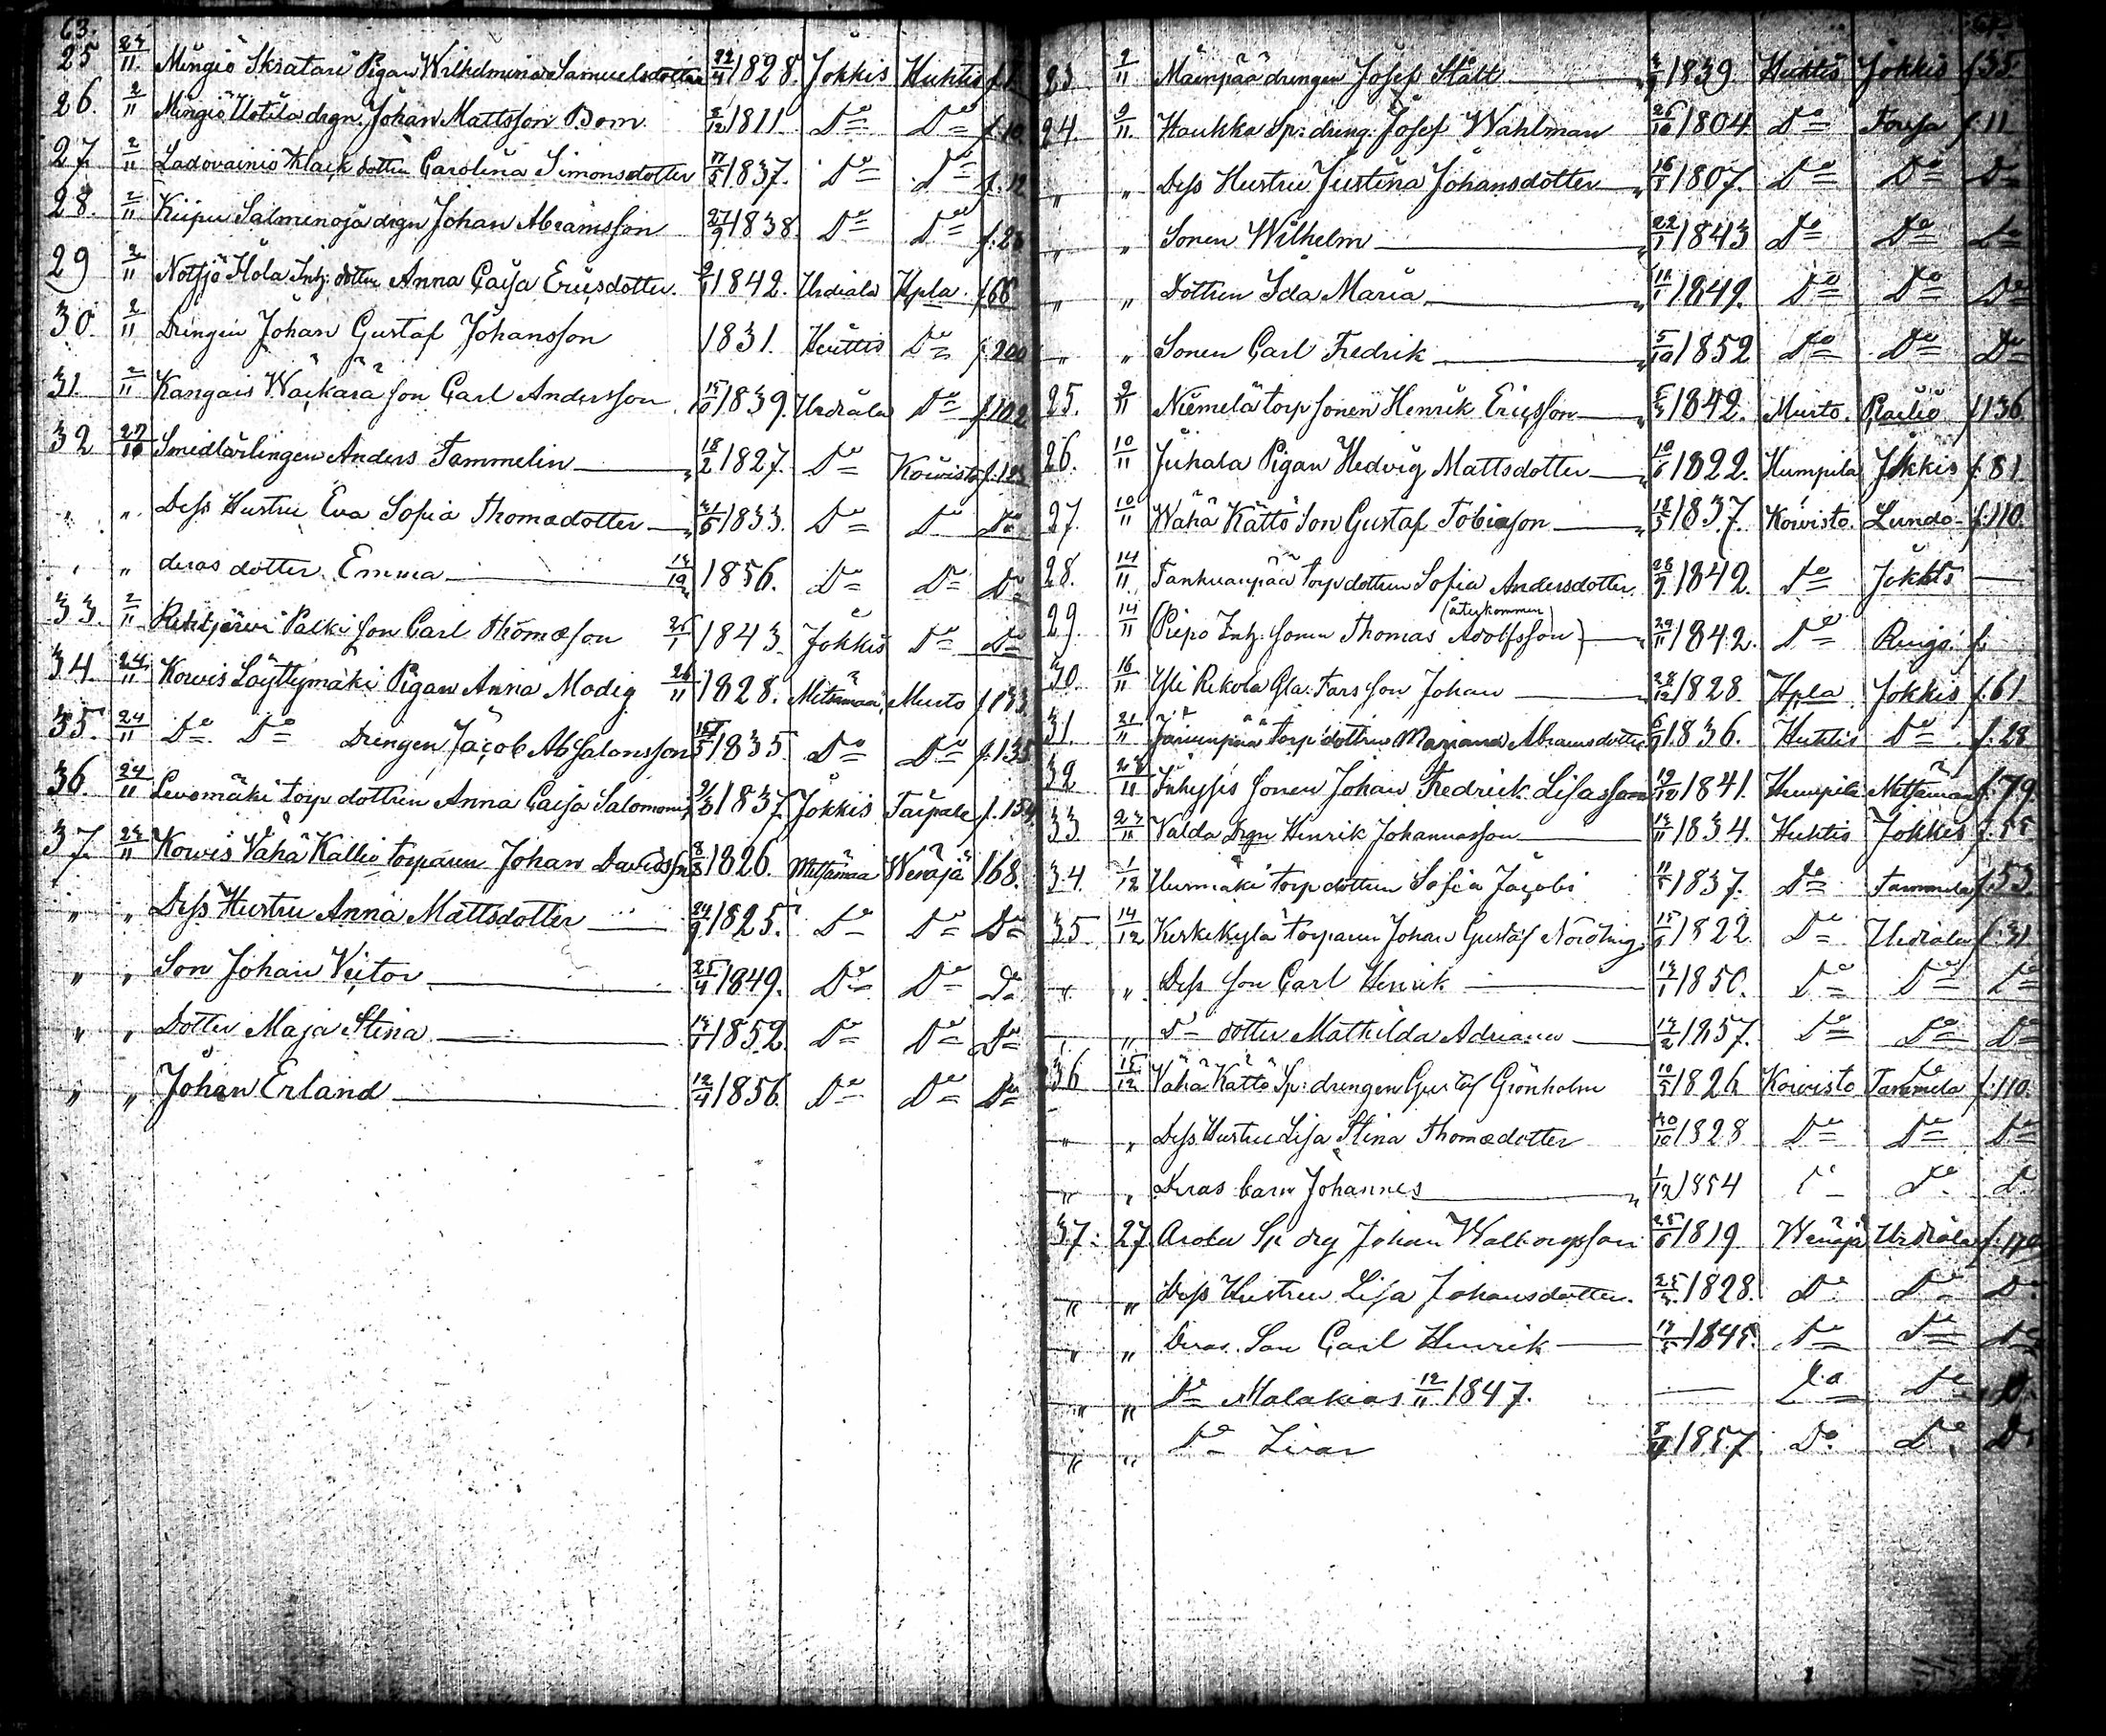 63.
25 23/11 Mingiö Skratari Pigan Wilhelmina Samuelsdotter 22/4 1828. Jokkis Huhtis
26. 2/11 Mingiö Uotila drgn. Johan Mattsson Bom 2/12 1811 Do Do f. 10
27. 2/11 Ladovainio Klack dottren Carolina Simonsdotter 17/5 1837. Do Do f. 12
28. 2/11 Kiipu Salmenoja drgn Johan Abramsson 27/9 1838. Do Do f. 28
29 2/11 Notsjö Hola Inh: dottren Anna Cajsa Ericsdotter. 1842. Urdiala Hpla. f 66
30. 2/11 Drengen Johan Gustaf Johansson 1831. Huittis Do f. 200
31. 2/11 Kangais Wäckärä son Carl Andersson 1839. Urdiala Do f 102
32 27/10 Smidlärlingen Anders Tammelin 18/2 1827. Do Koivisto f. 123
" " Dess Hustru Eva Sofia Thomædotter 21/5 1833. Do Do Do
" " deras dotter Emma 1856. Do Do Do
33. 2/11 Rehtijärvi Palki son Carl Thomæson 26/1 1843 Jokkis Do Do
34. 24/11 Kowis Löyttymäki Pigan Anna Modig 26/11 1828. Metsämaa, Murto f 133.
35. 24/11 Do Do Drengen Jacob Absalonsson 15/5 1835 Do Do f. 135
36. 24/11 Levomäki torp dottren Anna Cajsa Salomons 1837. Jokkis Taipale f. 154
37. 23/11 Kowis Vähä Kallio torparen Johan Davidsson 8/8 1826. Metsämaa Wenäjä 168.
" " Dess Hustru Anna Mattsdotter 24/9 1825. Do Do Do
" " Son Johan Victor 25/4 1849. Do Do Do
" " Dotter Maja Stina 1852. Do Do Do
" " Johan Erland 12/4 1856. Do Do Do
23 2/11 Mäenpää drengen Josef Stålt 1839. Huhtis Jokkis f 35
24. 9/11 Haukka Sp: dreng: Josef Wahlman 26/10 1804 Do Forssa f. 11
" " Dess Hustru Justina Johansdotter 1807. Do Do Do
" " Sonen Wilhelm 22/1 1843 Do Do Do
" " Dottren Ida Maria 11/1 1849. Do Do Do
" " Sonen Carl Fredrik 5/10 1852 Do Do Do
25. 9/11 Niemelä torp sonen Henrik Ericsson 1842. Murto. f 136
26. 10/11 Juhala Pigan Hedvig Mattsdotter 1822. Humpila Jokkis f. 81.
27. 10/11 Wähä Kättö Son Gustaf Tobiasson 18/5 1837. Koivisto. Lundo f. 110.
28. 14/11 Tanhuanpää torp dottren Sofia Andersdotter. 26/9 1842. Do Jokkis
(återkommen)
29. 14/11 (Piepo Inh. sonen Thomas Adolfsson) 29/11 1842. Do f.
30. 16/11 Yli Rekola Gla. Fars son Johan 28/12 1828 Hpla Jokkis f. 61
31. 21/11 Järvenpää torp dottren Mariana Abramsdotter 1836. Huhtis Do f. 28
32 23/11 Inhyses sonen Johan Fredrick Lisasson 19/12 1841. Humpila Metsämaa f. 79
33 23/11 Valda Drgn Henrik Johannesson 1834. Huhtis Jokkis f. 55
34. 1/12 Uurmäki torp dottren Sofia Jacobi 11/5 1837. Do Tammela f. 53.
35 14/12 Kerkekylä torparen Johan Gustaf Nording 1822. Do Urdiala f. 31
" " Dess son Carl Henrik 1850. Do Do Do
" " Do dotter Mathilda Adriana 1857. Do Do Do
36 15/12 Vähä Kättö Sp: drengen Gustaf Grönholm 10/5 1826 Koivisto Tammela f. 110.
" " Dess Hustru Lisa Stina Thomædotter 30/10 1828 Do Do Do
" " Deras barn Johannes 1/12 1854 Do Do Do
37. 27. Arola Sp drg Johan Walborgsson 1819 Wenäjä Urdiala
" " Dess Hustru Lisa Johansdotter. 1828. Do Do Do
" " Deras Son Carl Henrik 1845. Do Do Do
" " Do Malakias 12/11 1847. Do Do Do
" " Do Livar 1857. Do Do Do